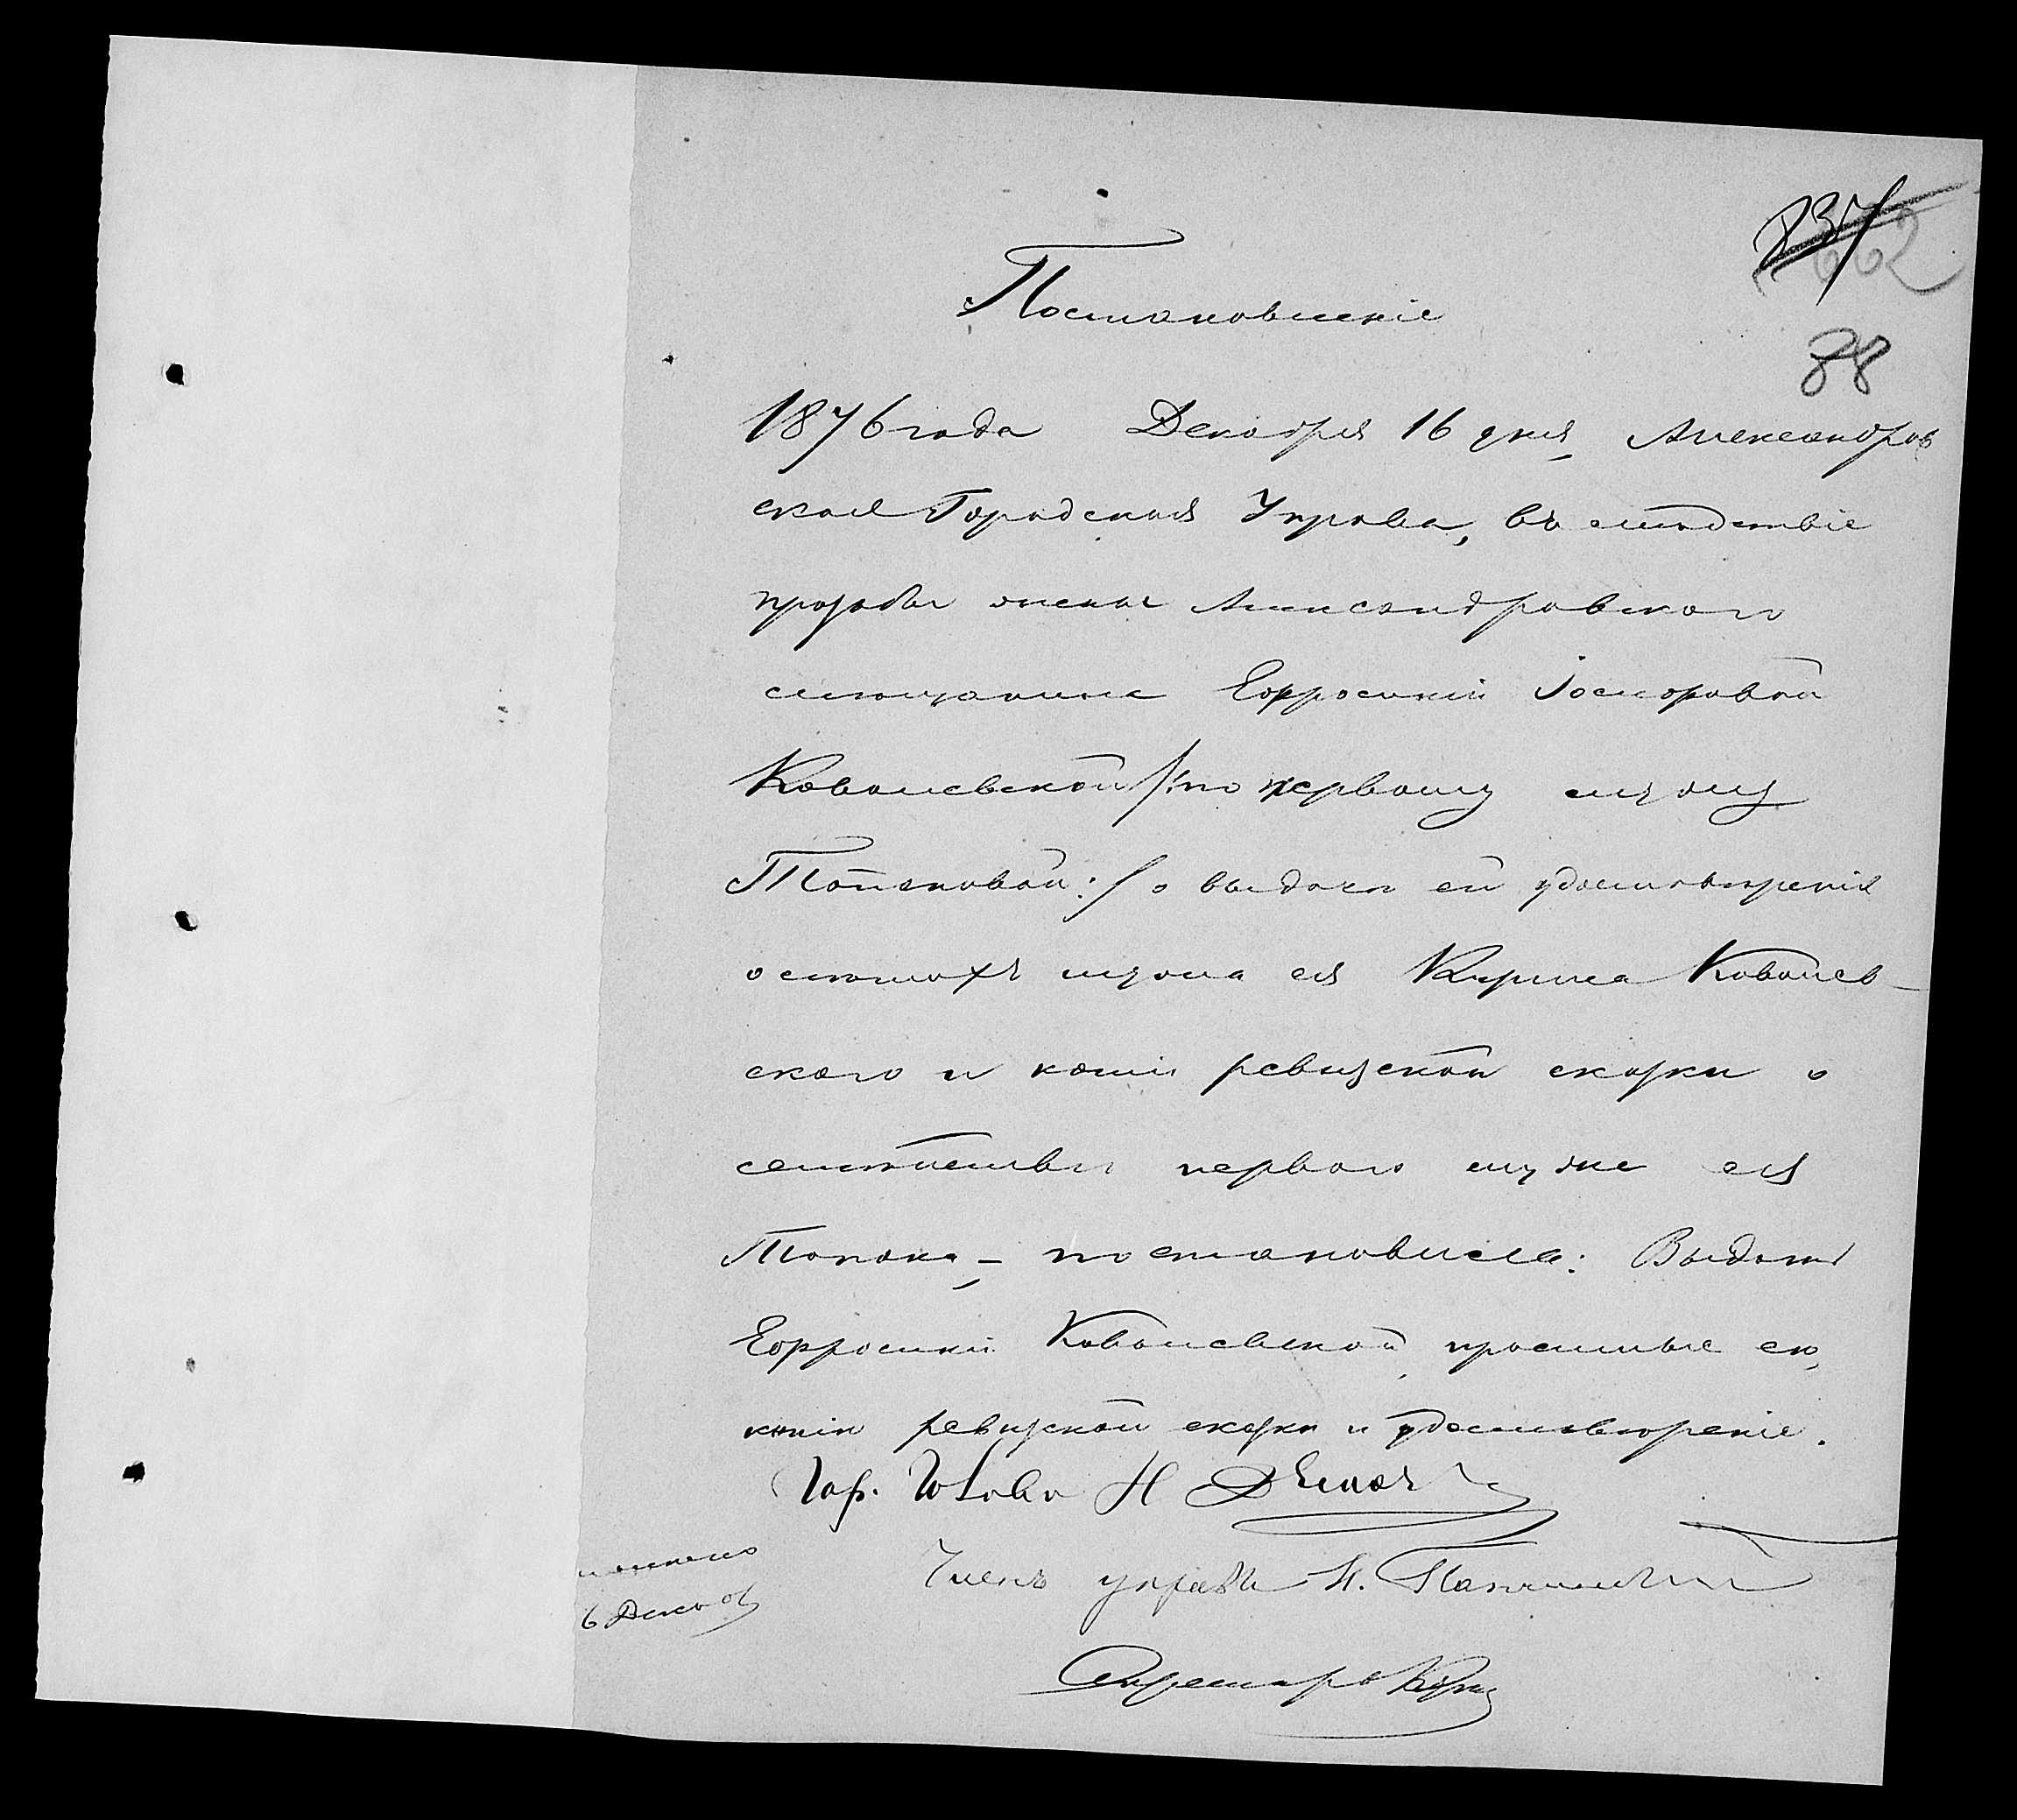 837
662
88
Постановленіе
1876 года Декабря 16 дня, Александров
ская Городская Управа, въ слѣдствіе
прозьбы жены Александровскаго
мѣщанина Ефросиніи
Ковалевской /:по первому мужу
Топаковой:/ о выдачи ей удостовѣренія
о лѣтахъ мужа ея Кирила Ковалев-
скаго и копіи ревизской сказки о
семѣйстве перваго мужа ея
Топака, – постановила: Выдать
Ефросиніи Ковалевской, просимые ею,
копію ревизской сказки и удостовѣреніе.
Гор. Голова Н
Членъ управы Н.
Секретарь
6 Декаб